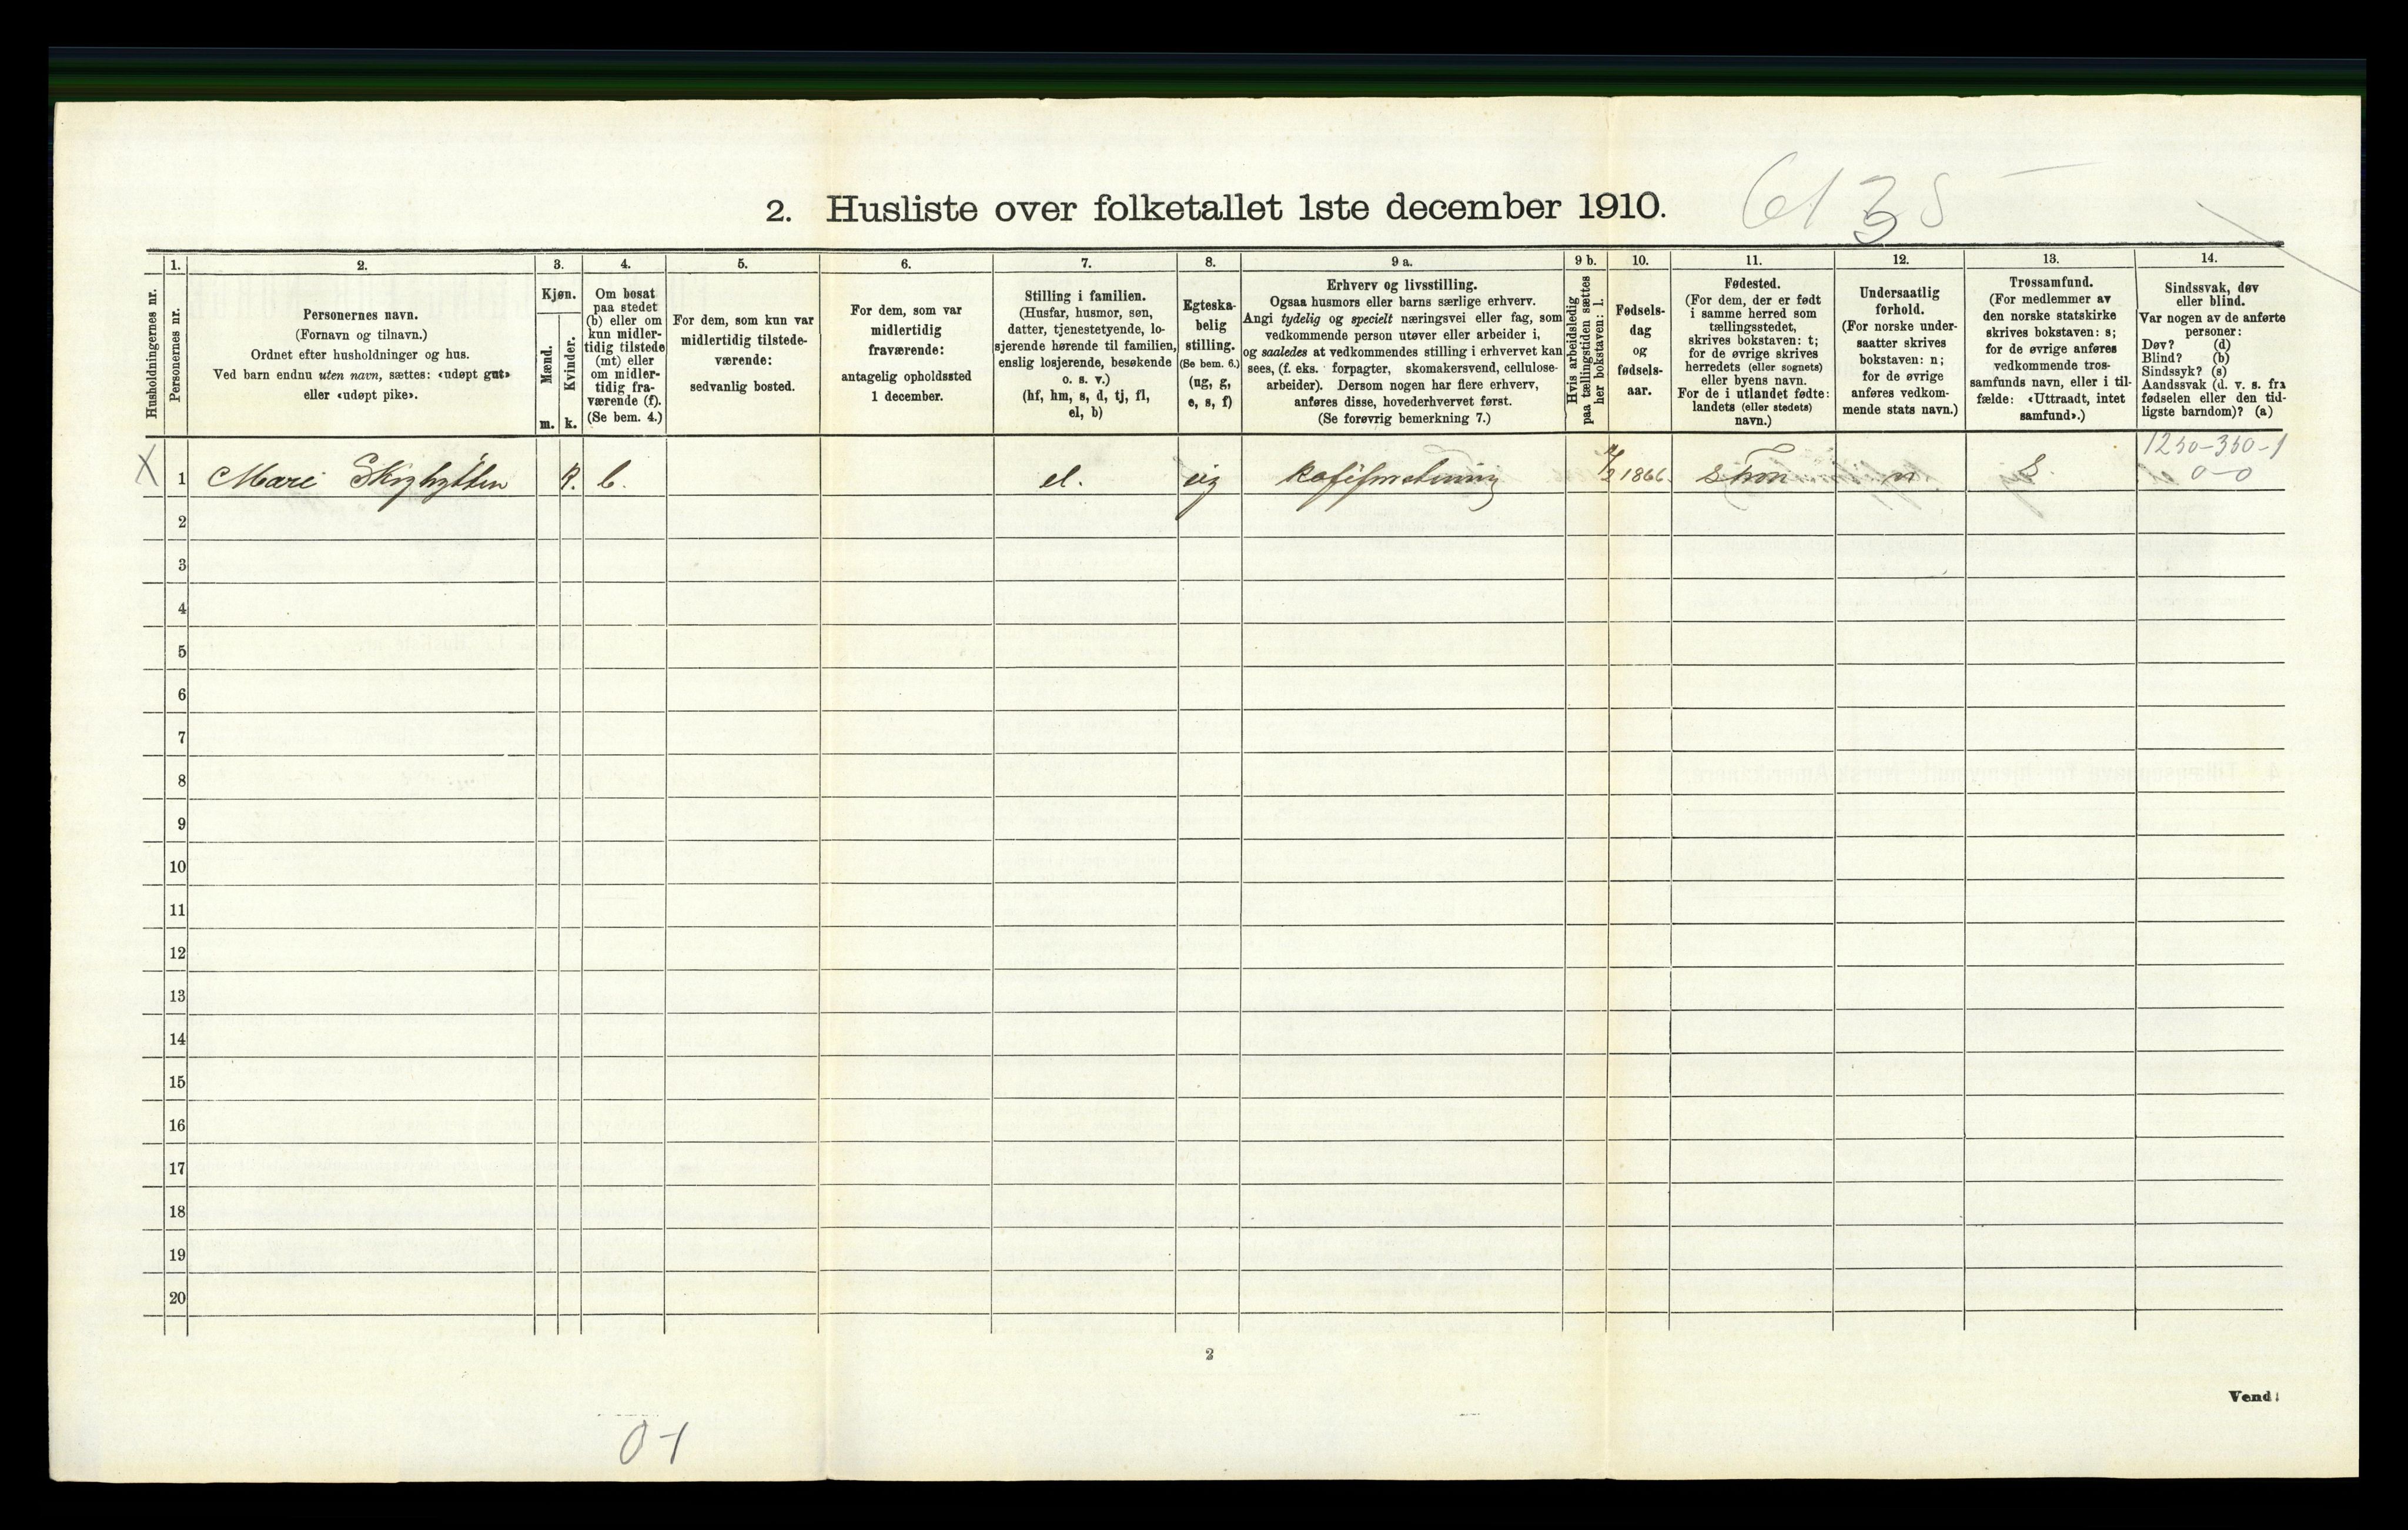 2. Husliste over folketallet 1ste december 1910.
6135
Husholdningernes nr.
1.
Personernes nr.
2.
Personernes navn.
(Fornavn og tilnavn.)
Ordnet efter husholdninger og hus.
Ved barn endnu uten navn, sættes: «udøpt gut»
eller «udøpt pike».
3.
Kjøn.
Mænd.
Kvinder.
m. k.
4.
Om bosat
paa stedet
(b) eller om
kun midler-
tidig tilstede
(mt) eller
om midler-
tidig fra-
værende (f).
(Se bem. 4.)
5.
For dem, som kun var
midlertidig tilstede-
værende:
sedvanlig bosted.
6.
For dem, som var
midlertidig
fraværende:
antagelig opholdssted
1 december.
7.
Stilling i familien.
(Husfar, husmor, søn,
datter, tjenestetyende, lo-
sjerende hørende til familien,
enslig losjerende, besøkende
o. s. v.)
(hf, hm, s, d, tj, fl,
el, b)
8.
Egteska-
belig
stilling.
(Se bem. 6.)
(ug, g,
e, s, f)
9 a.
Erhverv og livsstilling.
Ogsaa husmors eller barns særlige erhverv.
Angi tydelig og specielt næringsvei eller fag, som
vedkommende person utøver eller arbeider i,
og saaledes at vedkommendes stilling i erhvervet kan
sees, (f. eks. forpagter, skomakersvend, cellulose-
arbeider). Dersom nogen har flere erhverv,
anføres disse, hovederhvervet først.
(Se forøvrig bemerkning 7.)
9 b.
Hvis arbeidsledig
paa tællingstiden sættes
her bokstaven: l.
10.
Fødsels-
dag
og
fødsels-
aar.
11.
Fødested.
(For dem, der er født
i samme herred som
tællingsstedet,
skrives bokstaven: t;
for de øvrige skrives
herredets (eller sognets)
eller byens navn.
For de i utlandet fødte:
landets (eller stedets)
navn.)
12.
Undersaatlig
forhold.
(For norske under-
saatter skrives
bokstaven: n;
for de øvrige
anføres vedkom-
mende stats navn.)
13.
Trossamfund.
(For medlemmer av
den norske statskirke
skrives bokstaven: s;
for de øvrige anføres
vedkommende tros-
samfunds navn, eller i til-
fælde: «Uttraadt, intet
samfund».)
14.
Sindssvak, døv
eller blind.
Var nogen av de anførte
personer:
Døv? (d)
Blind? (b)
Sindssyk? (s)
Aandssvak (d. v. s. fra
fødselen eller den tid-
ligste barndom)? (a)
1250-350-1
X 1 Mari k. b. el. ug kaféforretning 1866. n s. 0-0
2
3
4
5
6
7
8
9
10
11
12
13
14
15
16
17
18
19
20
2
Vend!
0-1